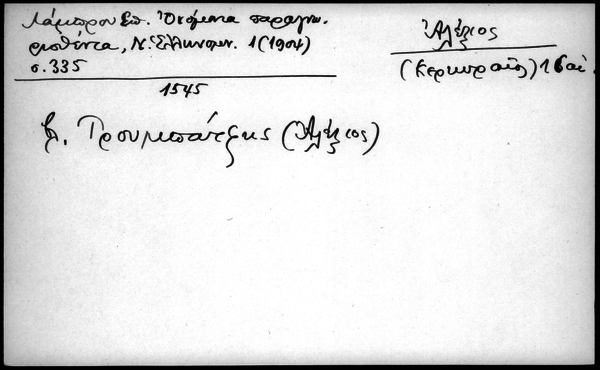 Λάμπρου Σπ. Ὀνόματα παραγνω-
ρισθέντα, Ν. Ἑλληνομν. 1 (1904)
σ. 335
1545
Ἀλέξιος
(Κερκυραῖος) 16 αἰ.
β. Τρουμπάτζης (Ἀλέξιος)